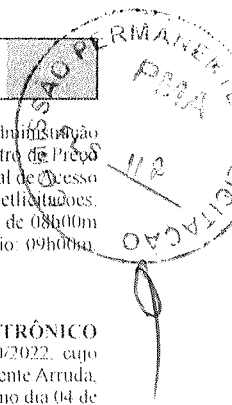 COMISSÃO PERMANENTE
LICITAÇÃO
112
dministração
tro de Preço
al de Acesso
etlicitacoes.
de 08h00m
io: 09h00m.
TRÔNICO
0/2022, cujo
ente Arruda,
no dia 04 de